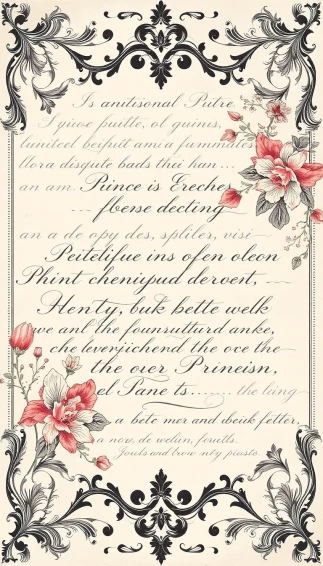 Is anitisonal Pritre
I give puitte, ol quinis,
lunitcel becfuit amca fummates
llora disqute bads thii han...
an am. Prince is Ereches
-- fbese decting
an a de opy des, spliles, visi
Peitelifue ins ofen oleon
Phint chenipud deroent, --
Henty, buk bette welk
we anl the founsutturd anke,
che leverjichend the oce the
the over Prineisn,
el Pane ts...... the liing
a bete mer and deuk fetter,
a now, de welun, fouills.